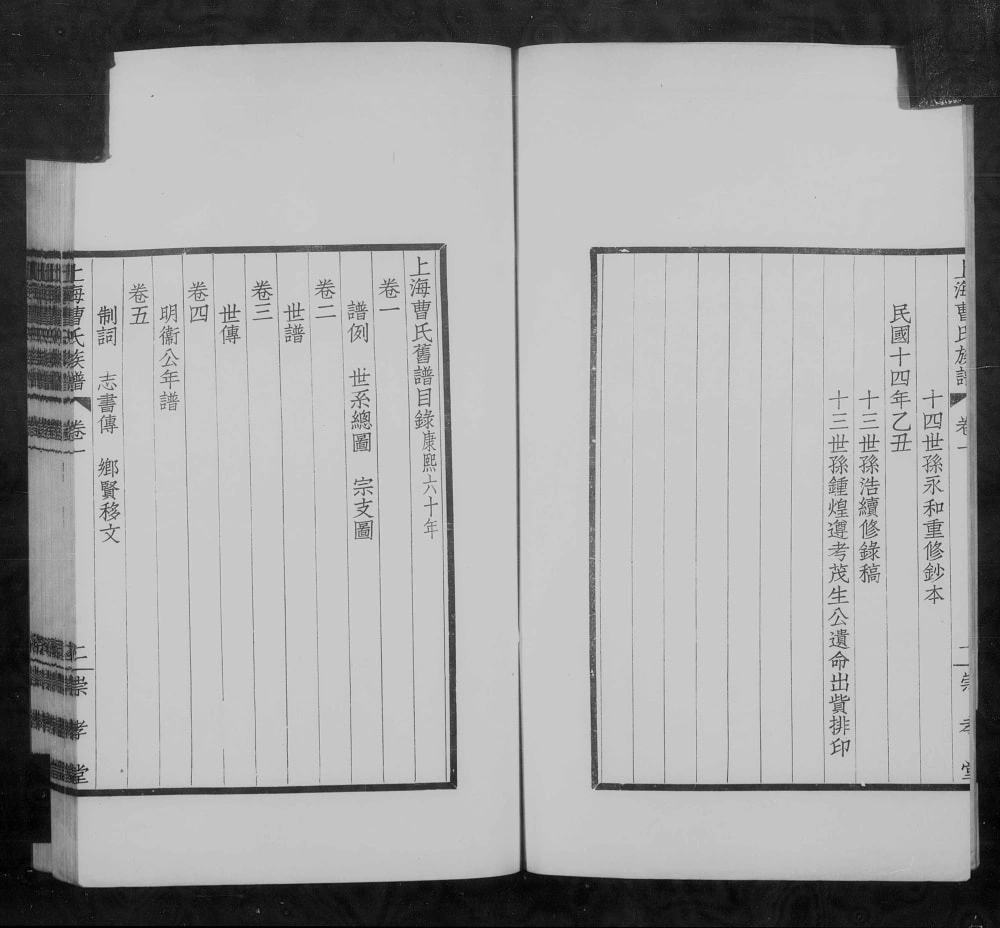 上海曹氏族譜 卷一 二 崇孝堂
十四世孫永和重修鈔本
民國十四年乙丑
十三世孫浩續修錄稿
十三世孫鍾煌遵考茂生公遺命出貲排印
上海曹氏舊譜目錄康熙六十年
卷一
譜例 世系總圖 宗支圖
卷二
世譜
卷三
世傳
卷四
明衞公年譜
卷五
制詞 志書傳 鄉賢移文
上海曹氏族譜 卷一 二 崇孝堂